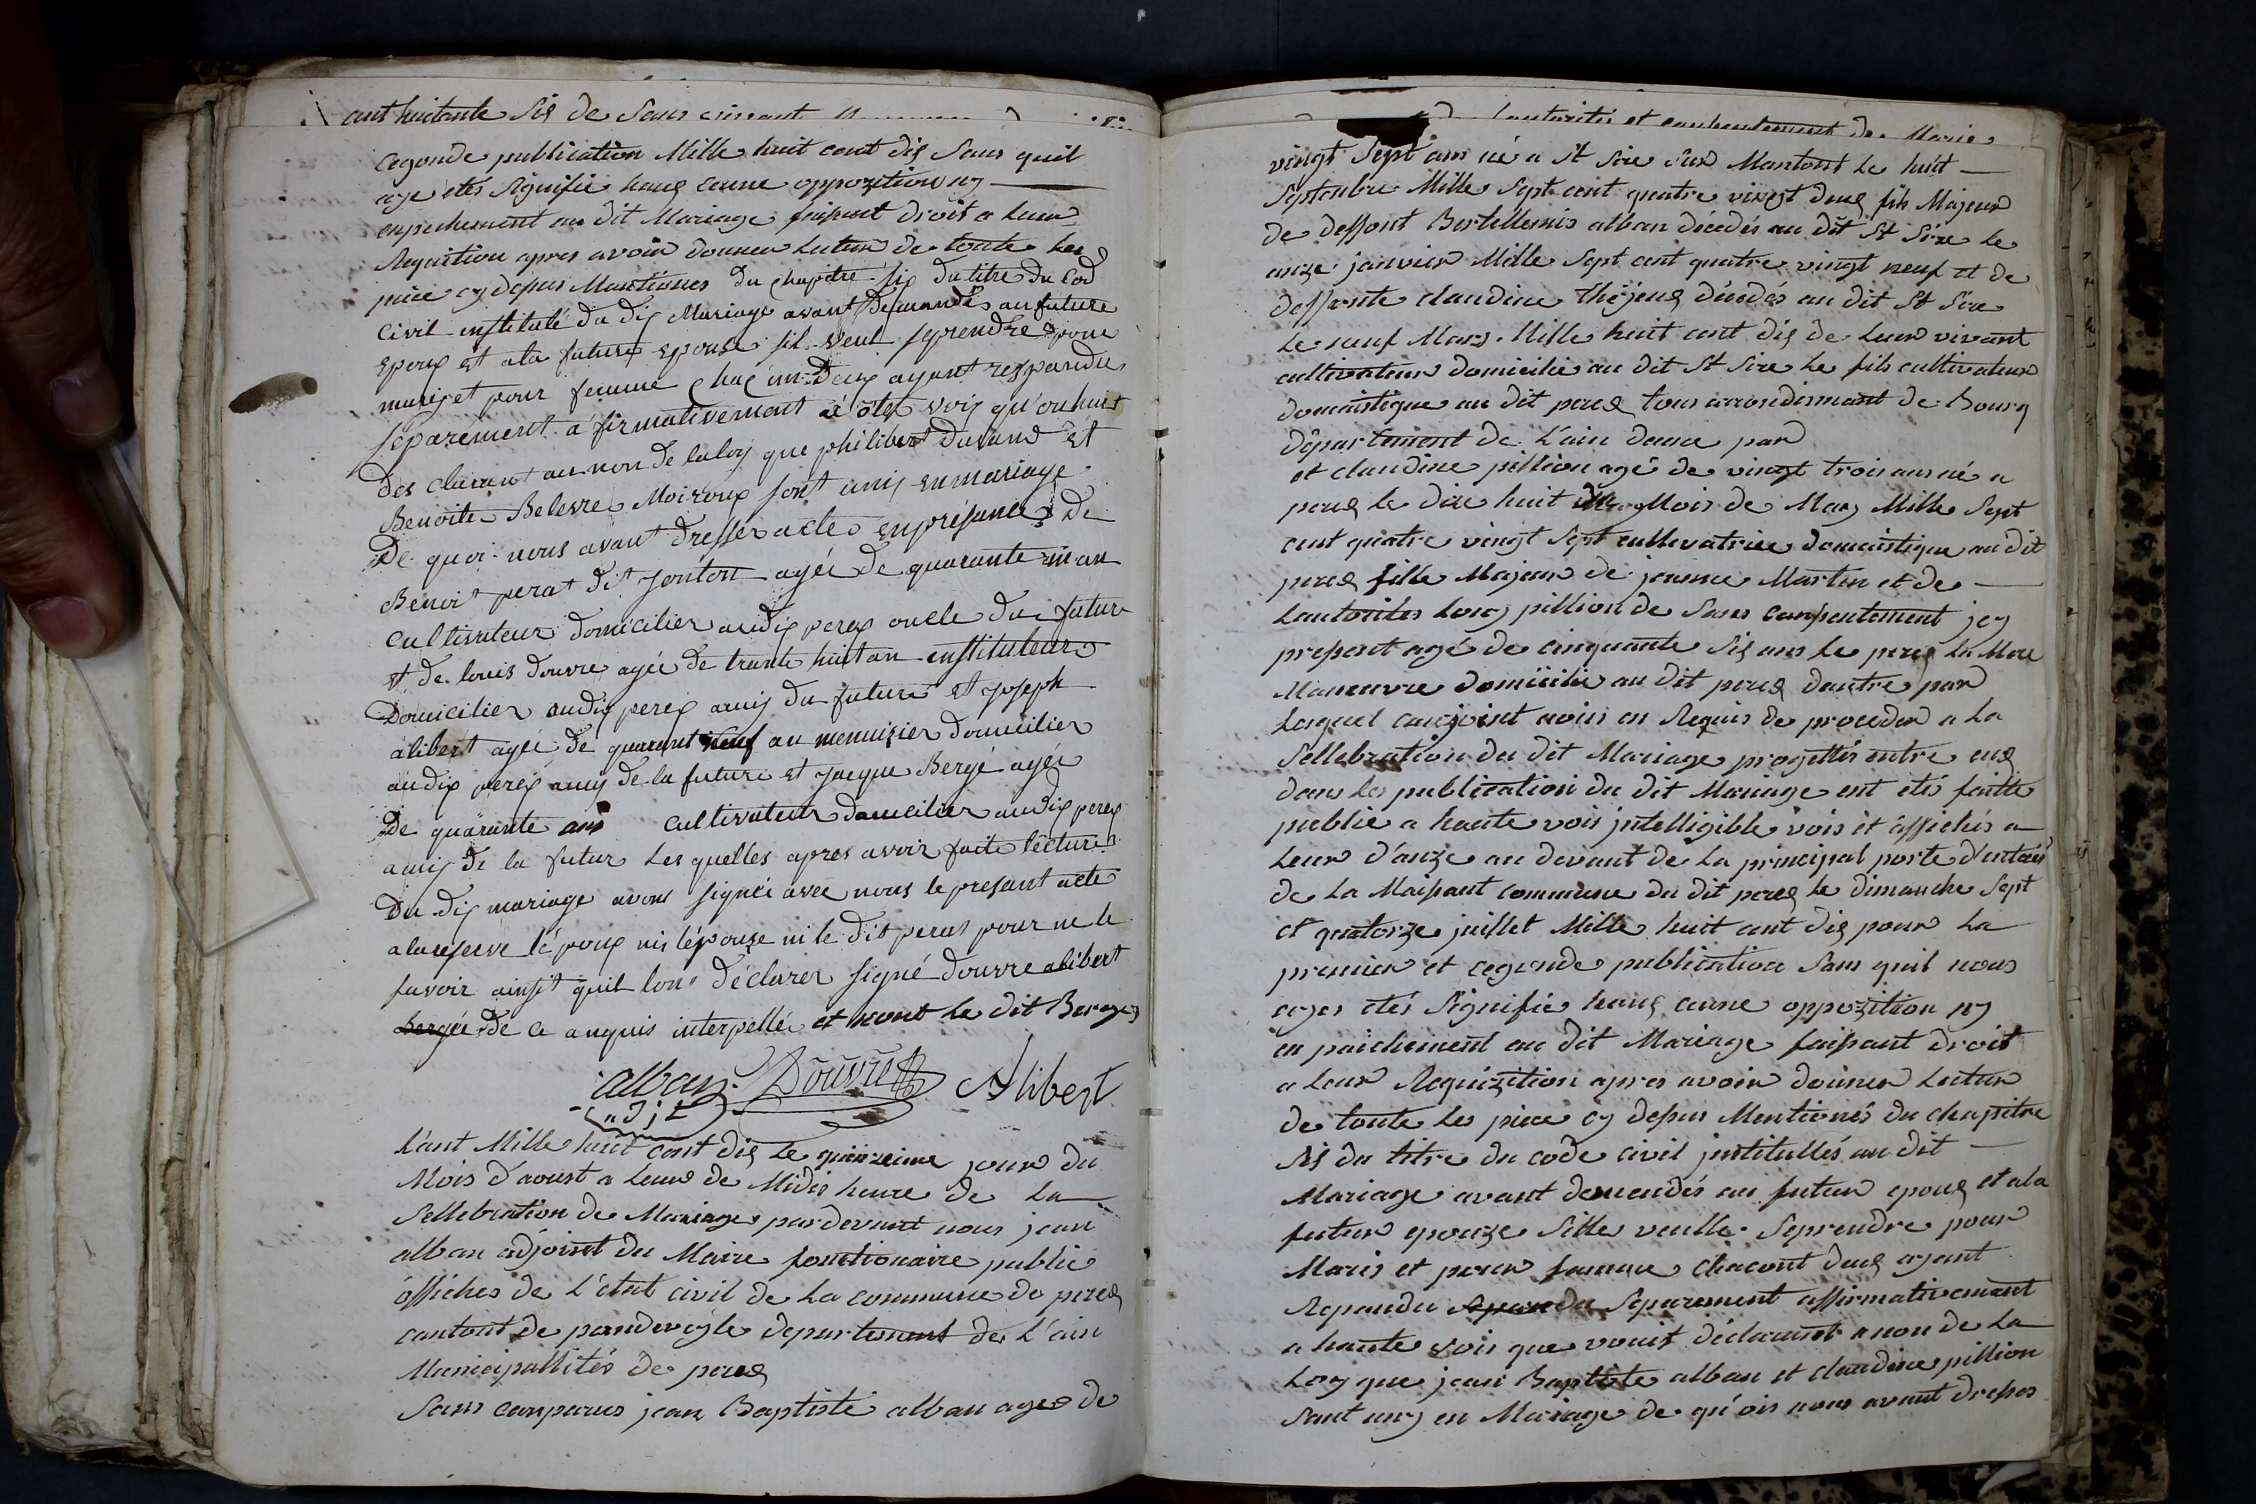 ant huitante sis de sans
cegonde publication Mille huit cent dis Sans quil
aye etés signifie haug caune oppozition ny
enpechement au dit Mariage faisant droit a leur
Requition apres avoir donner lutur de toute les
piece cy desus Mantiones du chapitre six du titre du Cod
civil institulé du dix Mariage avant Demandes au future
epoux et ala future epouse sil veul seprendre pour
maris et pour femme chaq un Deux ayant respondu
séparement á firmativement á ôtes voix qu'ou huit
des clarant au non de laloy que philibert durand et
Benoite Belevre Moiroux sont unis en mariage
De quoi nous avant dresser acte enprésance De
Benoit perat dit jonton agée de quarante un an
cultivateur domicilier audix perex oncle du futur
et de louis douvre agée de trante huit an enstituteur
Domicilier audix perex amis du future et joseph
álibert agée de quarant neuf an menuisier domicilier
audix perex amis de la future et jacque Bergé agée
De quarante ans cultivateur domicilier audix perex
amis de la futur les quelles apres avoir faite lécture
Du dix mariage avons signée avec nous le présant acte
alareserve lépoux nis lépouze ni le dit peras pour ne le
savoir ainsit quil lon déclarer signé douvre alibert
bergée de ce anquis interpellé et nont le dit Bergés
alban Douvre Alibert
adjt
L'ant Mille huit cent dis le quinzeime jour du
Mois d'aoust a leur de Midis heure de la
Sellebration de Mariage pardevant nous jean
alban adjoint du Maire fonctionaire public
óffiches de l'état civil de la commune de perex
cantont de pondevéyle departement de l'ain
Municipallités de perex
Sans comparus jean Baptiste alban ages de
lautorités et conhentement de Marie
vingt Sept ans né a St Sire sur Mantont le huit
Septenbre Mille Sept cent quatre vingt deux fils Majeur
de deffont Bertellemis alban décédés au dit St Sire le
anze janvier Mille Sept cent quatre vingt neuf et de
deffonte claudine théjeux décédés au dit St Sire
Le neuf Mars Mille huit cent dis de leur vivant
cultivateur domicilie au dit St Sire le fils cultivateur
domaistique au dit perex tous arrondismant de Bourg
département de L'ain doune par
et claudine pillion agé de vingt trois ans né a
perex le dixe huit du Mois de May Mille Sept
cent quatre vingt Sept cullevatrice domaistique au dit
perex fille Majeur de jeanne Martin et de
Lautorités Louy pillion de Sans consentement jcy
present agé de cinquante sis ans le perex la Mere
Maneuvre domicilie au dit perex dautre par
Lesquel conjoint nous en Requis de proceder a la
Sellebration du dit Mariage projettés entre eux
dans les publication du dit Mariage ent étés faitte
publie a haute vois jntelligible vois et affichés a
Leur d'anze au devant de la principal porte d'entrés
de la Maisant commune du dit perex le dimanche Sept
et quatorze juillet Mille huit cent dis pour La
premier et cegonde publication Sans quil nous
ayes etés Signifie haug caune oppozition ny
en paichement au dit Mariage faisant droit
a leur Requizition apres avoir donner Lectur
de toute les piece cy desus Mentionés du chapitre
sis du titre du code civil jnstitullés au dit
Mariage avant demandés au futur epoux et ala
futur epouze Sille veulle Seprendre pour
Maris et pour famme chacont deux ayant
Repandu Separement affirmativemant
a haute vois que vouit déclarant anon de La
Loy que jean Baptiste alban et claudine pillion
Sant uny en Mariage de qu'ois nous avant dresses